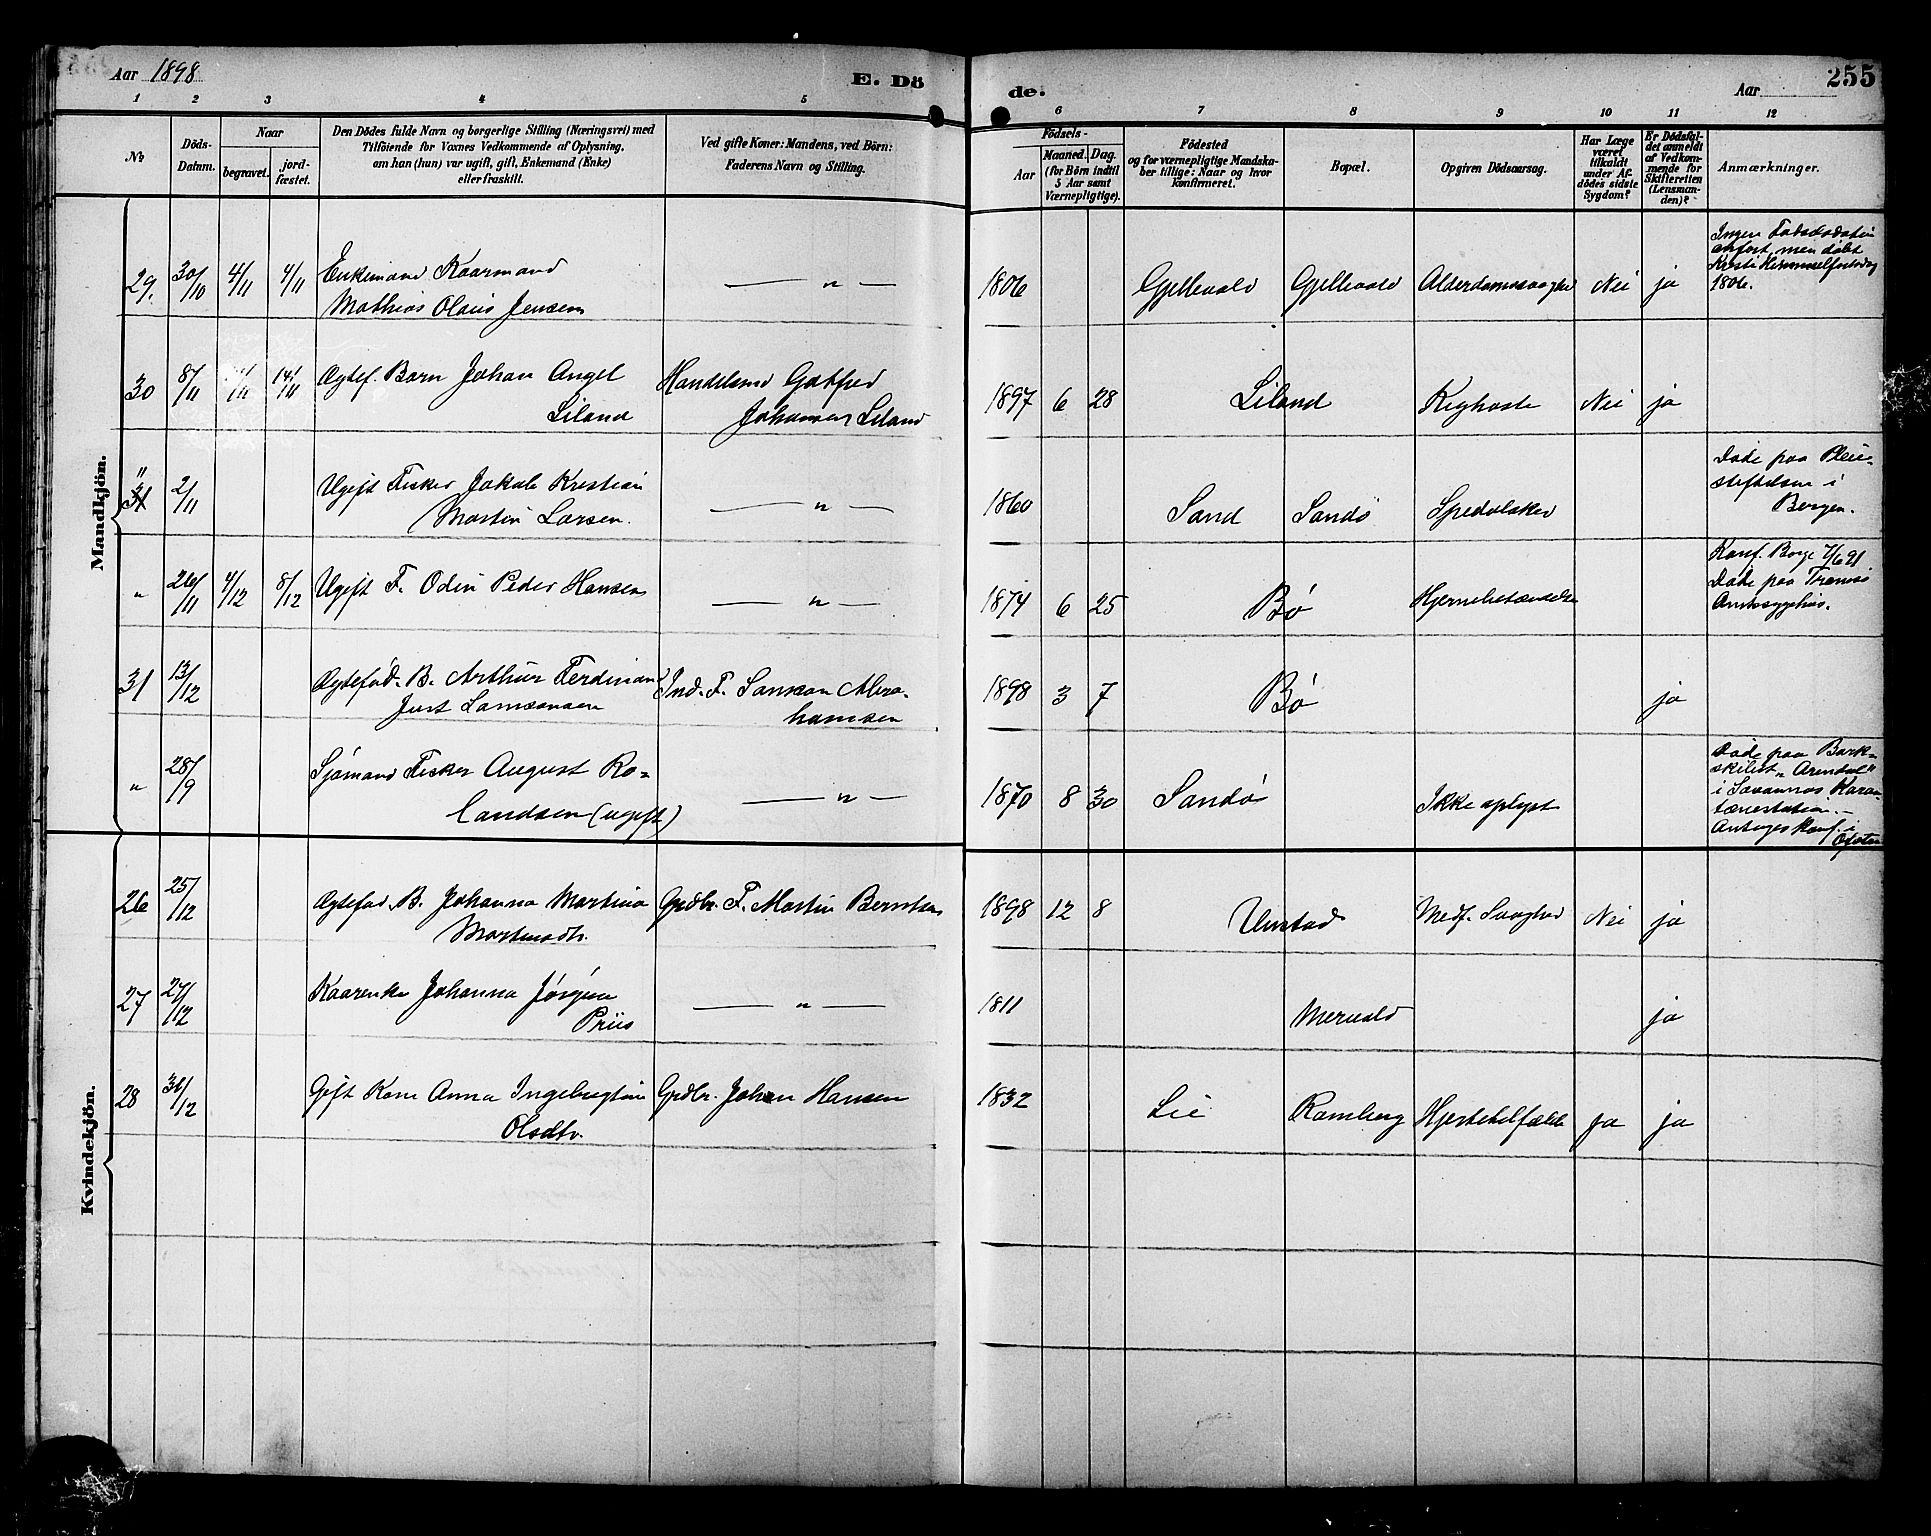 Aar 1898
E. Dö
de.
Aar
255
1 2 3 4 5 6 7 8 9 10 11 12
No
Döds-
Datum.
Naar
begravet.
jord-
fæstet.
Den Dödes fulde Navn og borgerlige Stilling (Næringsvei) med
Tilföiende for Voxnes Vedkommende af Oplysning,
om han (hun) var ugift, gift, Enkemand (Enke)
eller fraskilt.
Ved gifte Koner: Mandens, ved Börn:
Faderens Navn og Stilling.
Födsels-
Aar
Maaned. Dag.
(for Börn indtil
5 Aar samt
Værnepligtige).
Födested
og for værnepligtige Mandska-
ber tillige: Naar og hvor
konfirmeret.
Bopæl.
Opgiven Dödsaarsag.
Har Læge
været
tilkaldt
under Af-
dödes sidste
Sygdom?
Er Dödsfal-
det anmeldt
af Vedkom-
mende for
Skifteretten
(Lensman-
den)?
Anmærkninger.
Mandkjön.
29. 30/10 4/11 4/11 Enkemand Kaarmand
Mathias Olaus Jensen
— " — 1806 Gjellevold Gjellevold Alderdomssvaghed Nei ja
Ingen Fødselsdatum
anført, men døbt
Kristi Himmelfartsdag
1806.
30 8/11 14/11 Ægtef. Barn Johan Angel
Liland
Handelsmd Gotfred
Johannes Liland
1897 6 28 Liland Kighoste Nei ja
"
31 2/11 Ugift Fisker Jakob Kristian
Martin Larsen.
— " — 1860 Sand Sandø Spedalsked
Døde paa Pleie-
stiftelsen i
Bergen.
" 26/11 4/12 8/12 Ugift F. Odin Peder Hansen
— " — 1874 6 25 Bø Hjernebetændelse
Konf. Borge 7/6 91
Døde paa Tromsø
Amtssygehus.
31 13/12 Ægtefød. B. Arthur Ferdinand
Just Samsonsen
Ind. F. Samson Abra-
hamsen
1898 3 7 Bø ja
" 28/9 Sjømand Fisker August Ro-
landsen (ugift)
— " — 1870 8 30 Sandø Ikke oplyst
Døde paa Bark-
skibet "Arendal"
i Savannas Karan
tænestation.
Antages konf. i
Ofoten
Kvindekjön.
26 25/12 Ægtefød. B. Johanna Martina
Martinsdtr.
Grdbr. F. Martin Berntsen
1898 12 8 Unstad Medf. Svaghed Nei ja
27 27/12 Kaarenke Johanna Jørgina
Priis
— " — 1811 Mervold ja
28 31/12 Gift Kone Anna Ingebregtine
Olsdtr.
Grdbr. Johan Hansen
1832 Lie Ramberg Hjertetilfælde ja ja